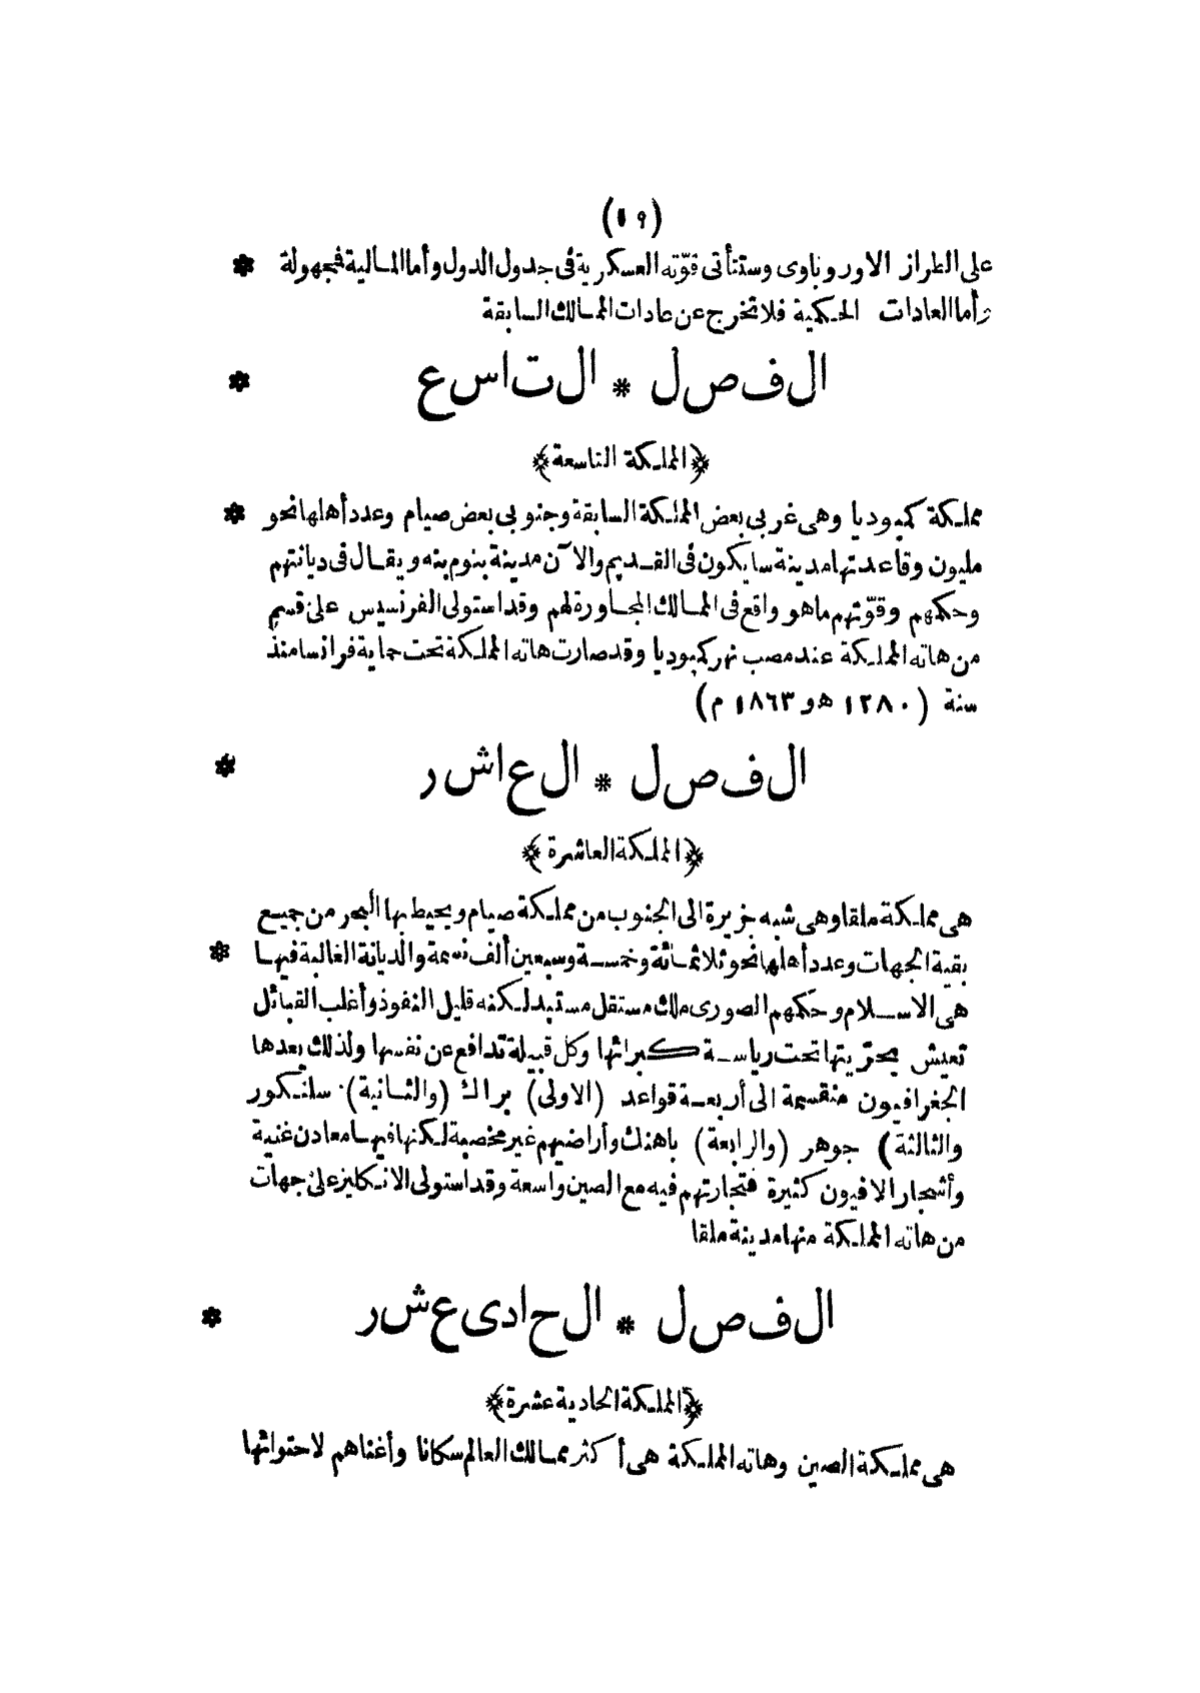 (١٩)
على الطراز الاوروباوى وستأتى قوّته العسكرية فى جدول الدول وأما المالية فمجهولة *
وأما العادات الحكمية فلا تخرج عن عادات الممالك السابقة
الفصل * التاسع *
﴿المملكة التاسعة﴾
مملكة كمبوديا وهى غربى بعض المملكة السابقة وجنوبى بعض صيام وعدد أهلها نحو *
مليون وقاعدتها مدينة سايكون فى القديم والآن مدينة بنوم بنه ويقال فى ديانتهم
وحكمهم وقوّتهم ماهو واقع فى الممالك المجاورة لهم وقد استولى الفرنسيس على قسم
من هاته المملكة عند مصب نهر كمبوديا وقد صارت هاته المملكة تحت حماية فرانسا منذ
سنة (١٢٨٠ هو ١٨٦٣ م)
الفصل * العاشر *
﴿المملكة العاشرة﴾
هى مملكة ملقا وهى شبه جزيرة الى الجنوب من مملكة صيام ويحيط بها البحر من جميع
بقية الجهات وعدد أهلها نحو ثلاثمائة وخمسة وسبعين ألف نسمة والديانة الغالبة فيها *
هى الاسلام وحكمهم الصورى ملك مستقل مستبد لكنه قليل النفوذ وأغلب القبائل
تعيش بحرّيتها تحت رياسة كبرائها وكل قبيلة تدافع عن نفسها ولذلك يعدها
الجغرافيون منقسمة الى أربعة قواعد (الاولى) براك (والثانية) سلنكور
والثالثة) جوهر (والرابعة) باهنك وأراضيهم غير مخصبة لكنها فيها معادن غنية
وأشجار الافيون كثيرة فتجارتهم فيه مع الصين واسعة وقد استولى الانكليز على جهات
من هاته المملكة منها مدينة ملقا
الفصل * الحادى عشر *
﴿المملكة الحادية عشرة﴾
هى مملكة الصين وهاته المملكة هى أكثر ممالك العالم سكانا وأغناهم لاحتوائها